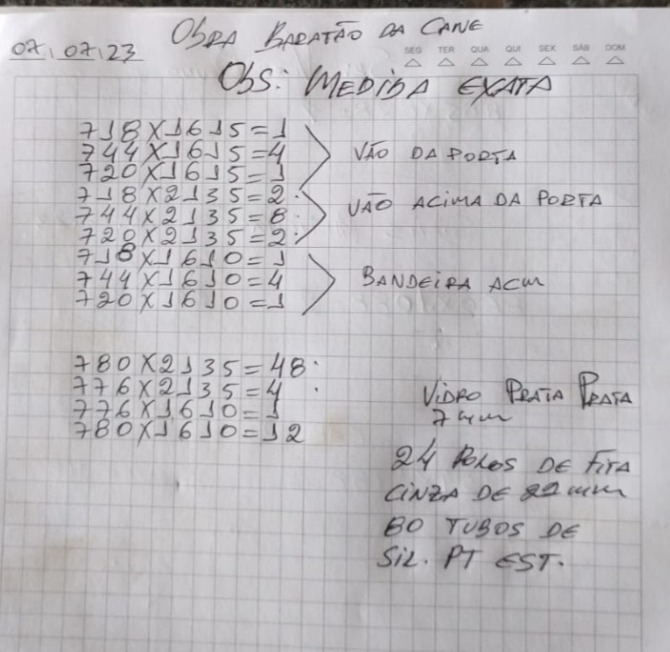 Obra Baratão da Cane
07/07/23
SEG TER QUA QUI SEX SÁB DOM
Obs: Medida Exata
718X1615=1
744X1615=4
720X1615=1
Vão da Porta
718X2135=2
744X2135=8
720X2135=2
Vão Acima da Porta
718X1610=1
744X1610=4
720X1610=1
Bandeira ACM
780X2135=48
776X2135=4
776X1610=1
780X1610=12
Vidro Prata Prata
7mm
24 Rolos de Fita
Cinza de mm
80 Tubos de
Sil. PT Est.